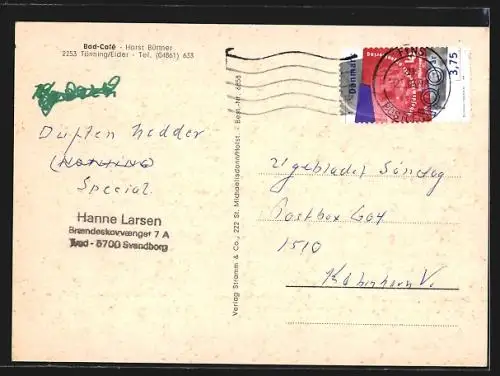 Bad-Café - Horst Büttner
2253 Tönning/Eider - Tel. (04861) 633
Duften Nedder
Special.
Hanne Larsen
Brændeskovvænget 7 A
Tved - 5700 Svendborg
Verlag Stramm & Co., 222 St. Michaelisdonn/Holst. - Best.-Nr. 6858
Danmark
3,75
Ugebladet Søndag
Postbox 604
1510
København V.